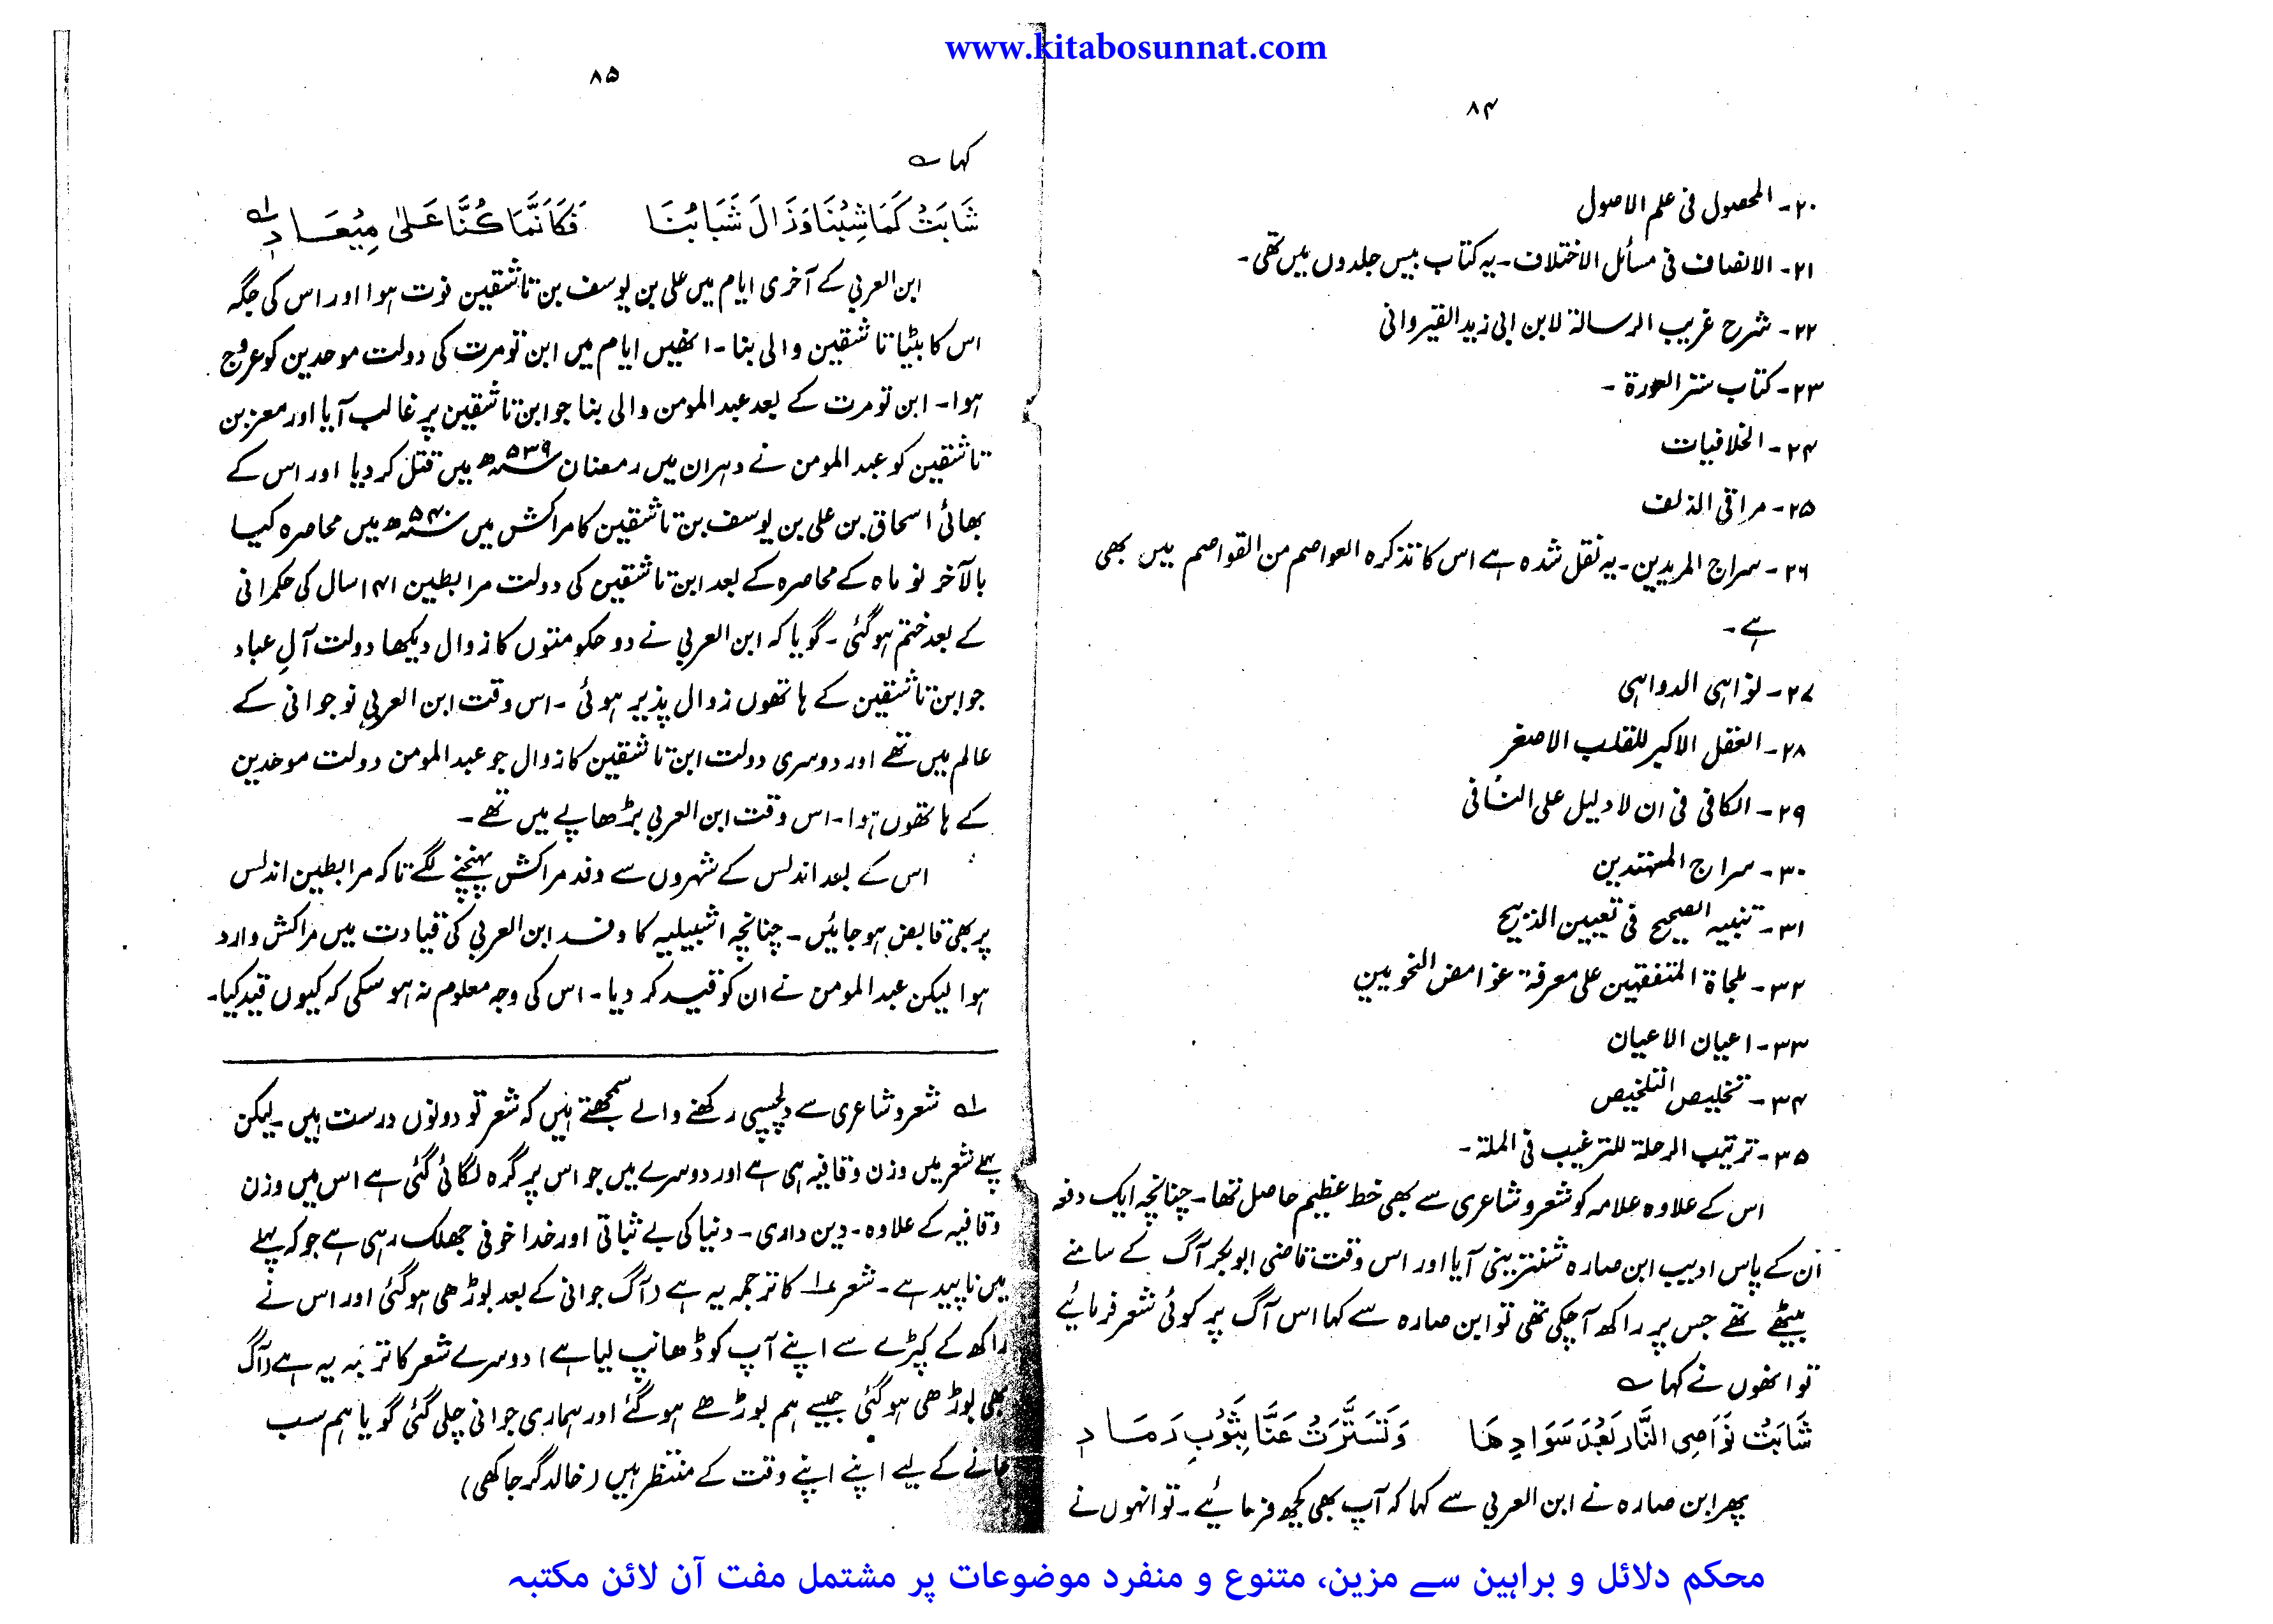 www.kitabosunnat.com
۸۴
۲۰- المحصول فی علم الاصول
۲۱- الانصاف فی مسائل الاختلاف - یہ کتاب بیس جلدوں میں تھی -
۲۲- شرح غریب الرسالۃ لابن ابی زید القیروانی
۲۳- کتاب ستر العورۃ -
۲۴- الخلافیات
۲۵- مراقی الذلف
۲۶- سراج المریدین - یہ نقل شدہ ہے اس کا تذکرہ العواصم من القواصم میں بھی
ہے -
۲۷- نواہی الدواہی
۲۸- العقل الاکبر للقلب الاصغر
۲۹- الکافی فی ان لا دلیل علی النافی
۳۰- سراج المہتدین
۳۱- تنبیہ الصحیح فی تعیین الذبیح
۳۲- ملجاۃ المتفقہین علی معرفۃ غوامض النحویین
۳۳- اعیان الاعیان
۳۴- تخلیص التلخیص
۳۵- ترتیب الرحلۃ للترغیب فی الملۃ -
اس کے علاوہ علامہ کو شعر و شاعری سے بھی خط عظیم حاصل تھا - چنانچہ ایک دفعہ
ان کے پاس ادیب ابن صارہ شنترینی آیا اور اس وقت قاضی ابوبکر آگ کے سامنے
بیٹھے تھے جس پر راکھ آچکی تھی تو ابن صارہ سے کہا اس آگ پر کوئی شعر فرمائیے
تو انھوں نے کہا ؎
شَابَتْ نَوَاصِی النَّارِ بَعْدَ سَوَادِهَا وَتَسَتَّرَتْ عَنَّا بِثَوْبِ رَمَادِ
پھر ابن صارہ نے ابن العربی سے کہا کہ آپ بھی کچھ فرمائیے - تو انہوں نے
۸۵
کہا ؎
شَابَتْ كَمَا شِبْنَا وَزَالَ شَبَابُنَا فَكَاَنَّمَا كُنَّا عَلىٰ مِيْعَادِ لہ
ابن العربی کے آخری ایام میں علی بن یوسف بن تاشقین فوت ہوا اور اس کی جگہ
اس کا بیٹا تاشقین والی بنا - انھیں ایام میں ابن تومرت کی دولت موحدین کو عروج
ہوا - ابن تومرت کے بعد عبدالمومن والی بنا جو ابن تاشقین پر غالب آیا اور معز بن
تاشقین کو عبدالمومن نے دہران میں رمضان ۵۳۹ھ میں قتل کر دیا اور اس کے
بھائی اسحاق بن علی بن یوسف بن تاشقین کا مراکش میں ۵۴۰ھ میں محاصرہ کیا
بالآخر نو ماہ کے محاصرہ کے بعد ابن تاشقین کی دولت مرابطین ۱۴۱ سال کی حکمرانی
کے بعد ختم ہوگئی - گویا کہ ابن العربی نے دو حکومتوں کا زوال دیکھا دولت آلِ عباد
جو ابن تاشقین کے ہاتھوں زوال پذیر ہوئی - اس وقت ابن العربی نوجوانی کے
عالم میں تھے اور دوسری دولت ابن تاشقین کا زوال جو عبدالمومن دولت موحدین
کے ہاتھوں ہوا - اس وقت ابن العربی بڑھاپے میں تھے -
اس کے بعد اندلس کے شہروں سے وفد مراکش پہنچنے لگے تاکہ مرابطین اندلس
پر بھی قابض ہوجائیں - چنانچہ اشبیلیہ کا وفد ابن العربی کی قیادت میں مراکش وارد
ہوا لیکن عبدالمومن نے ان کو قید کر دیا - اس کی وجہ معلوم نہ ہوسکی کہ کیوں قید کیا -
لہ شعر و شاعری سے دلچسپی رکھنے والے سمجھتے ہیں کہ شعر تو دونوں درست ہیں - لیکن
پہلے شعر میں وزن و قافیہ ہی ہے اور دوسرے میں جو اس پر گرہ لگائی گئی ہے اس میں وزن
وقافیہ کے علاوہ - دین داری - دنیا کی بے ثباتی اور خدا خوفی جھلک رہی ہے جو کہ پہلے
میں ناپید ہے - شعر ۱ کا ترجمہ یہ ہے (آگ جوانی کے بعد بوڑھی ہوگئی اور اس نے
راکھ کے کپڑے سے اپنے آپ کو ڈھانپ لیا ہے) دوسرے شعر کا ترجمہ یہ ہے (آگ
بھی بوڑھی ہوگئی جیسے ہم بوڑھے ہوگئے اور ہماری جوانی چلی گئی گویا ہم سب
جانے کے لیے اپنے اپنے وقت کے منتظر ہیں (خالد گرجاکھی)
محکم دلائل و براہین سے مزین، متنوع و منفرد موضوعات پر مشتمل مفت آن لائن مکتبہ